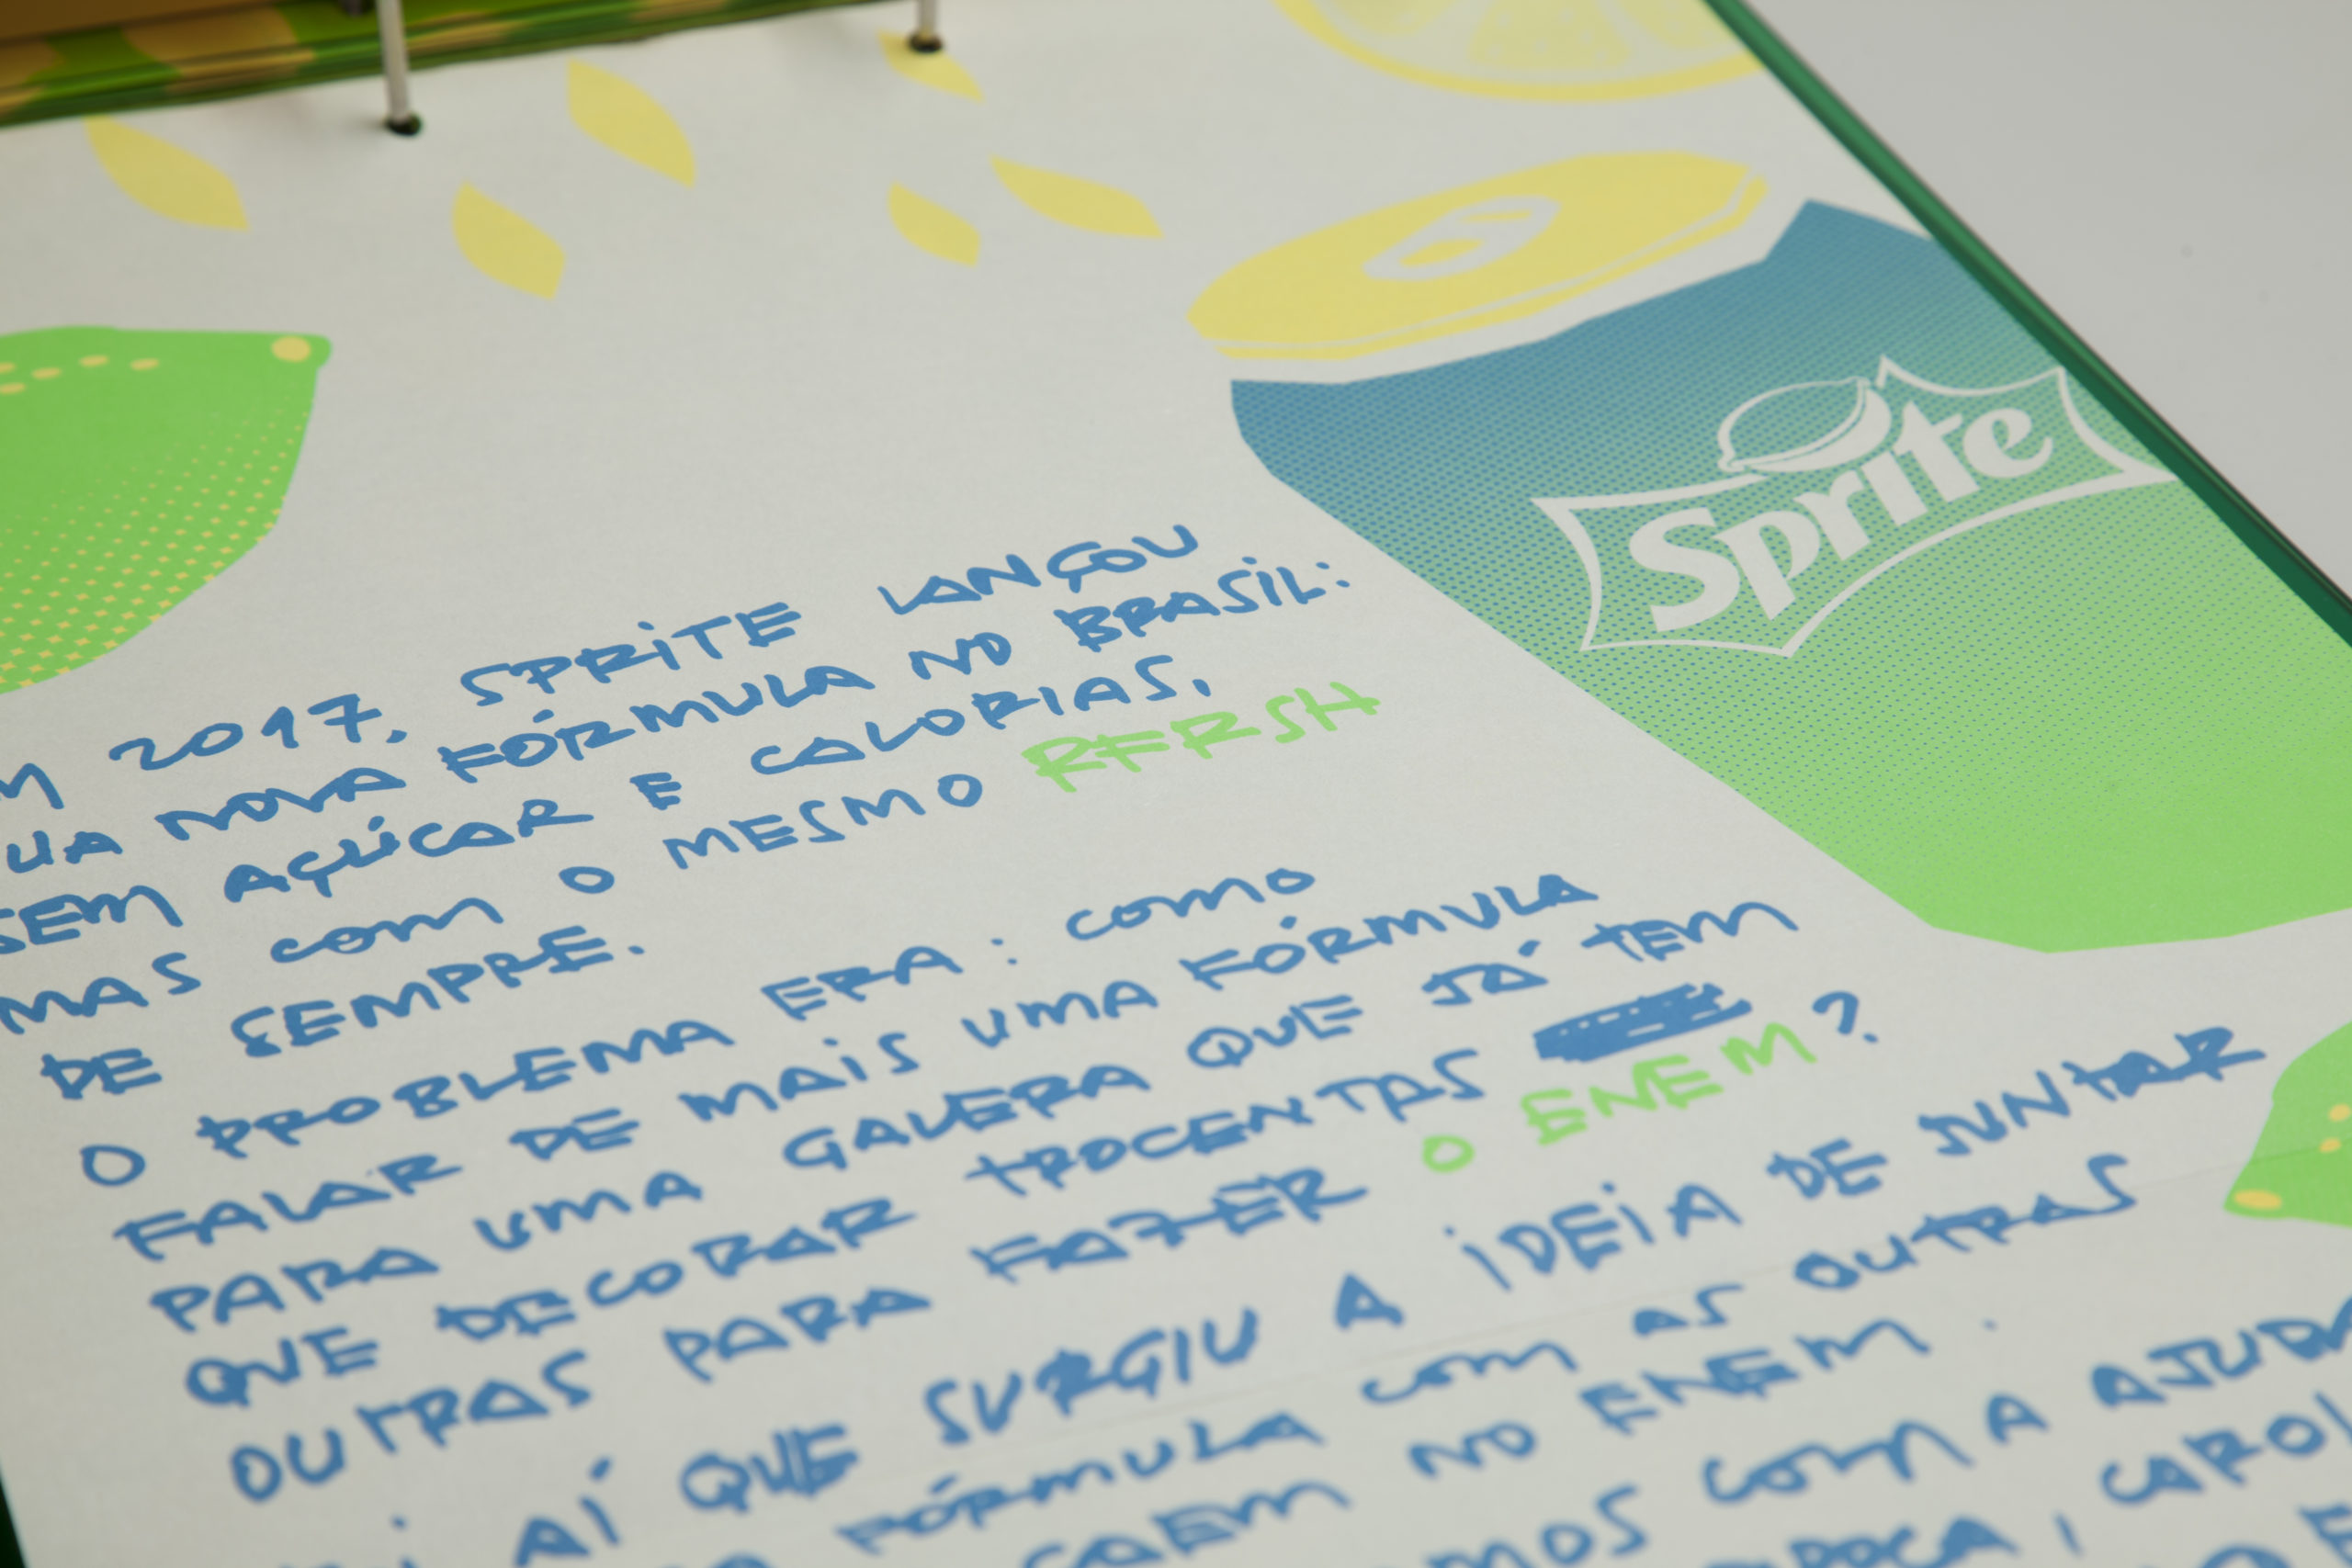 Sprite
M 2017, SPRITE LANÇOU
UA NOVA FÓRMULA NO BRASIL:
SEM AÇÚCAR E CALORIAS,
MAS COM O MESMO RFRSH
DE SEMPRE.
O PROBLEMA ERA: COMO
FALAR DE MAIS UMA FÓRMULA
PARA UMA GALERA QUE JÁ TEM
QUE DECORAR TROCENTAS
OUTRAS PARA FAZER O ENEM?
AÍ QUE SURGIU A IDEIA DE JUNTAR
FÓRMULA COM AS OUTRAS
CAEM NO ENEM.
MOS COM A AJUDA